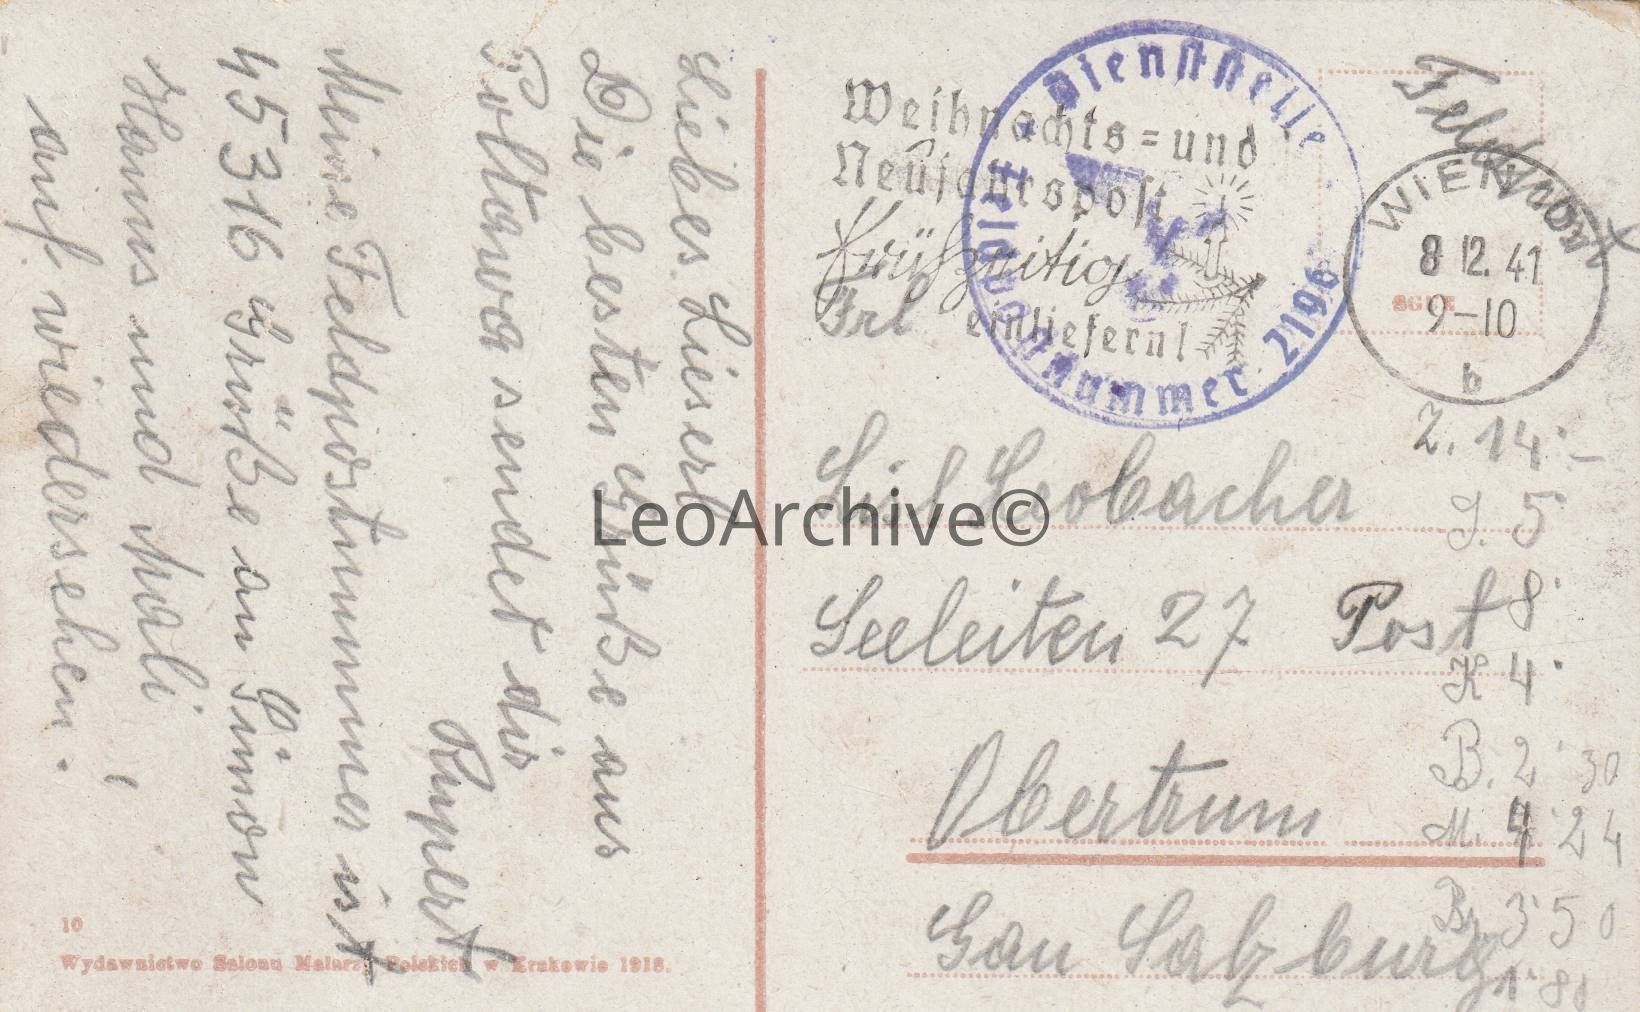 Liebes Lieserl
Die besten Grüße aus
Poltawa sendet dir
Rupert
Meine Feldpostnummer ist
45316 Grüße an Simon
Hanns und Mali!
auf wiedersehen.
10
Wydawnictwo Salonu Malarzy Polskich w Krakowie 1918.
Feldpost
Weihnachts=und
Neujahrspost
frühzeitig
einliefern!
Dienststelle
Feldpostnummer
WIEN
8 12. 41
9-10
b
Frl
Lisl Leobacher
Seeleiten 27 Post
Obertrum
Gau Salzburg
Z. 14 · –
J. 5 ·
8 ·
K 4 ·
B. 2 · 30
M. 4 · 24
3 · 50
LeoArchive©